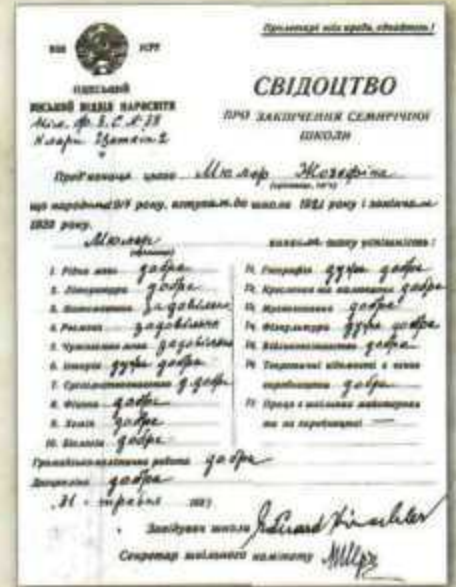 Пролетарі всіх країн, єднайтесь!
ОДЕСЬКИЙ
МІСЬКИЙ ВІДДІЛ НАРОСВІТИ
Клари Цеткін 2
СВІДОЦТВО
ПРО ЗАКІНЧЕННЯ СЕМИРІЧНОЇ
ШКОЛИ
Мюлер Жозефіна
(прізвище, ім'я)
року, вступила до школи року і закінчила
року.
Мюлер
(прізвище)
таку успішність:
1. Рідна мова добре
2. Література добре
3. Математика задовільно
4. задовільно
5. Чужоземна мова задовільно
6. Історія дуже добре
7. Суспільствознавство д. добре
8. Фізика добре
9. Хемія добре
10. Біологія добре
11. Географія дуже добре
12. Креслення та малювання добре
13. добре
14. Фізкультура дуже добре
15. добре
16. Теоретичні відомості з основ
виробництва добре
17. Праця в шкільних майстернях
та на виробництві —
Громадсько-політична робота добре
Дисципліна добре
31 травня
Завідувач школи
Секретар шкільного комітету